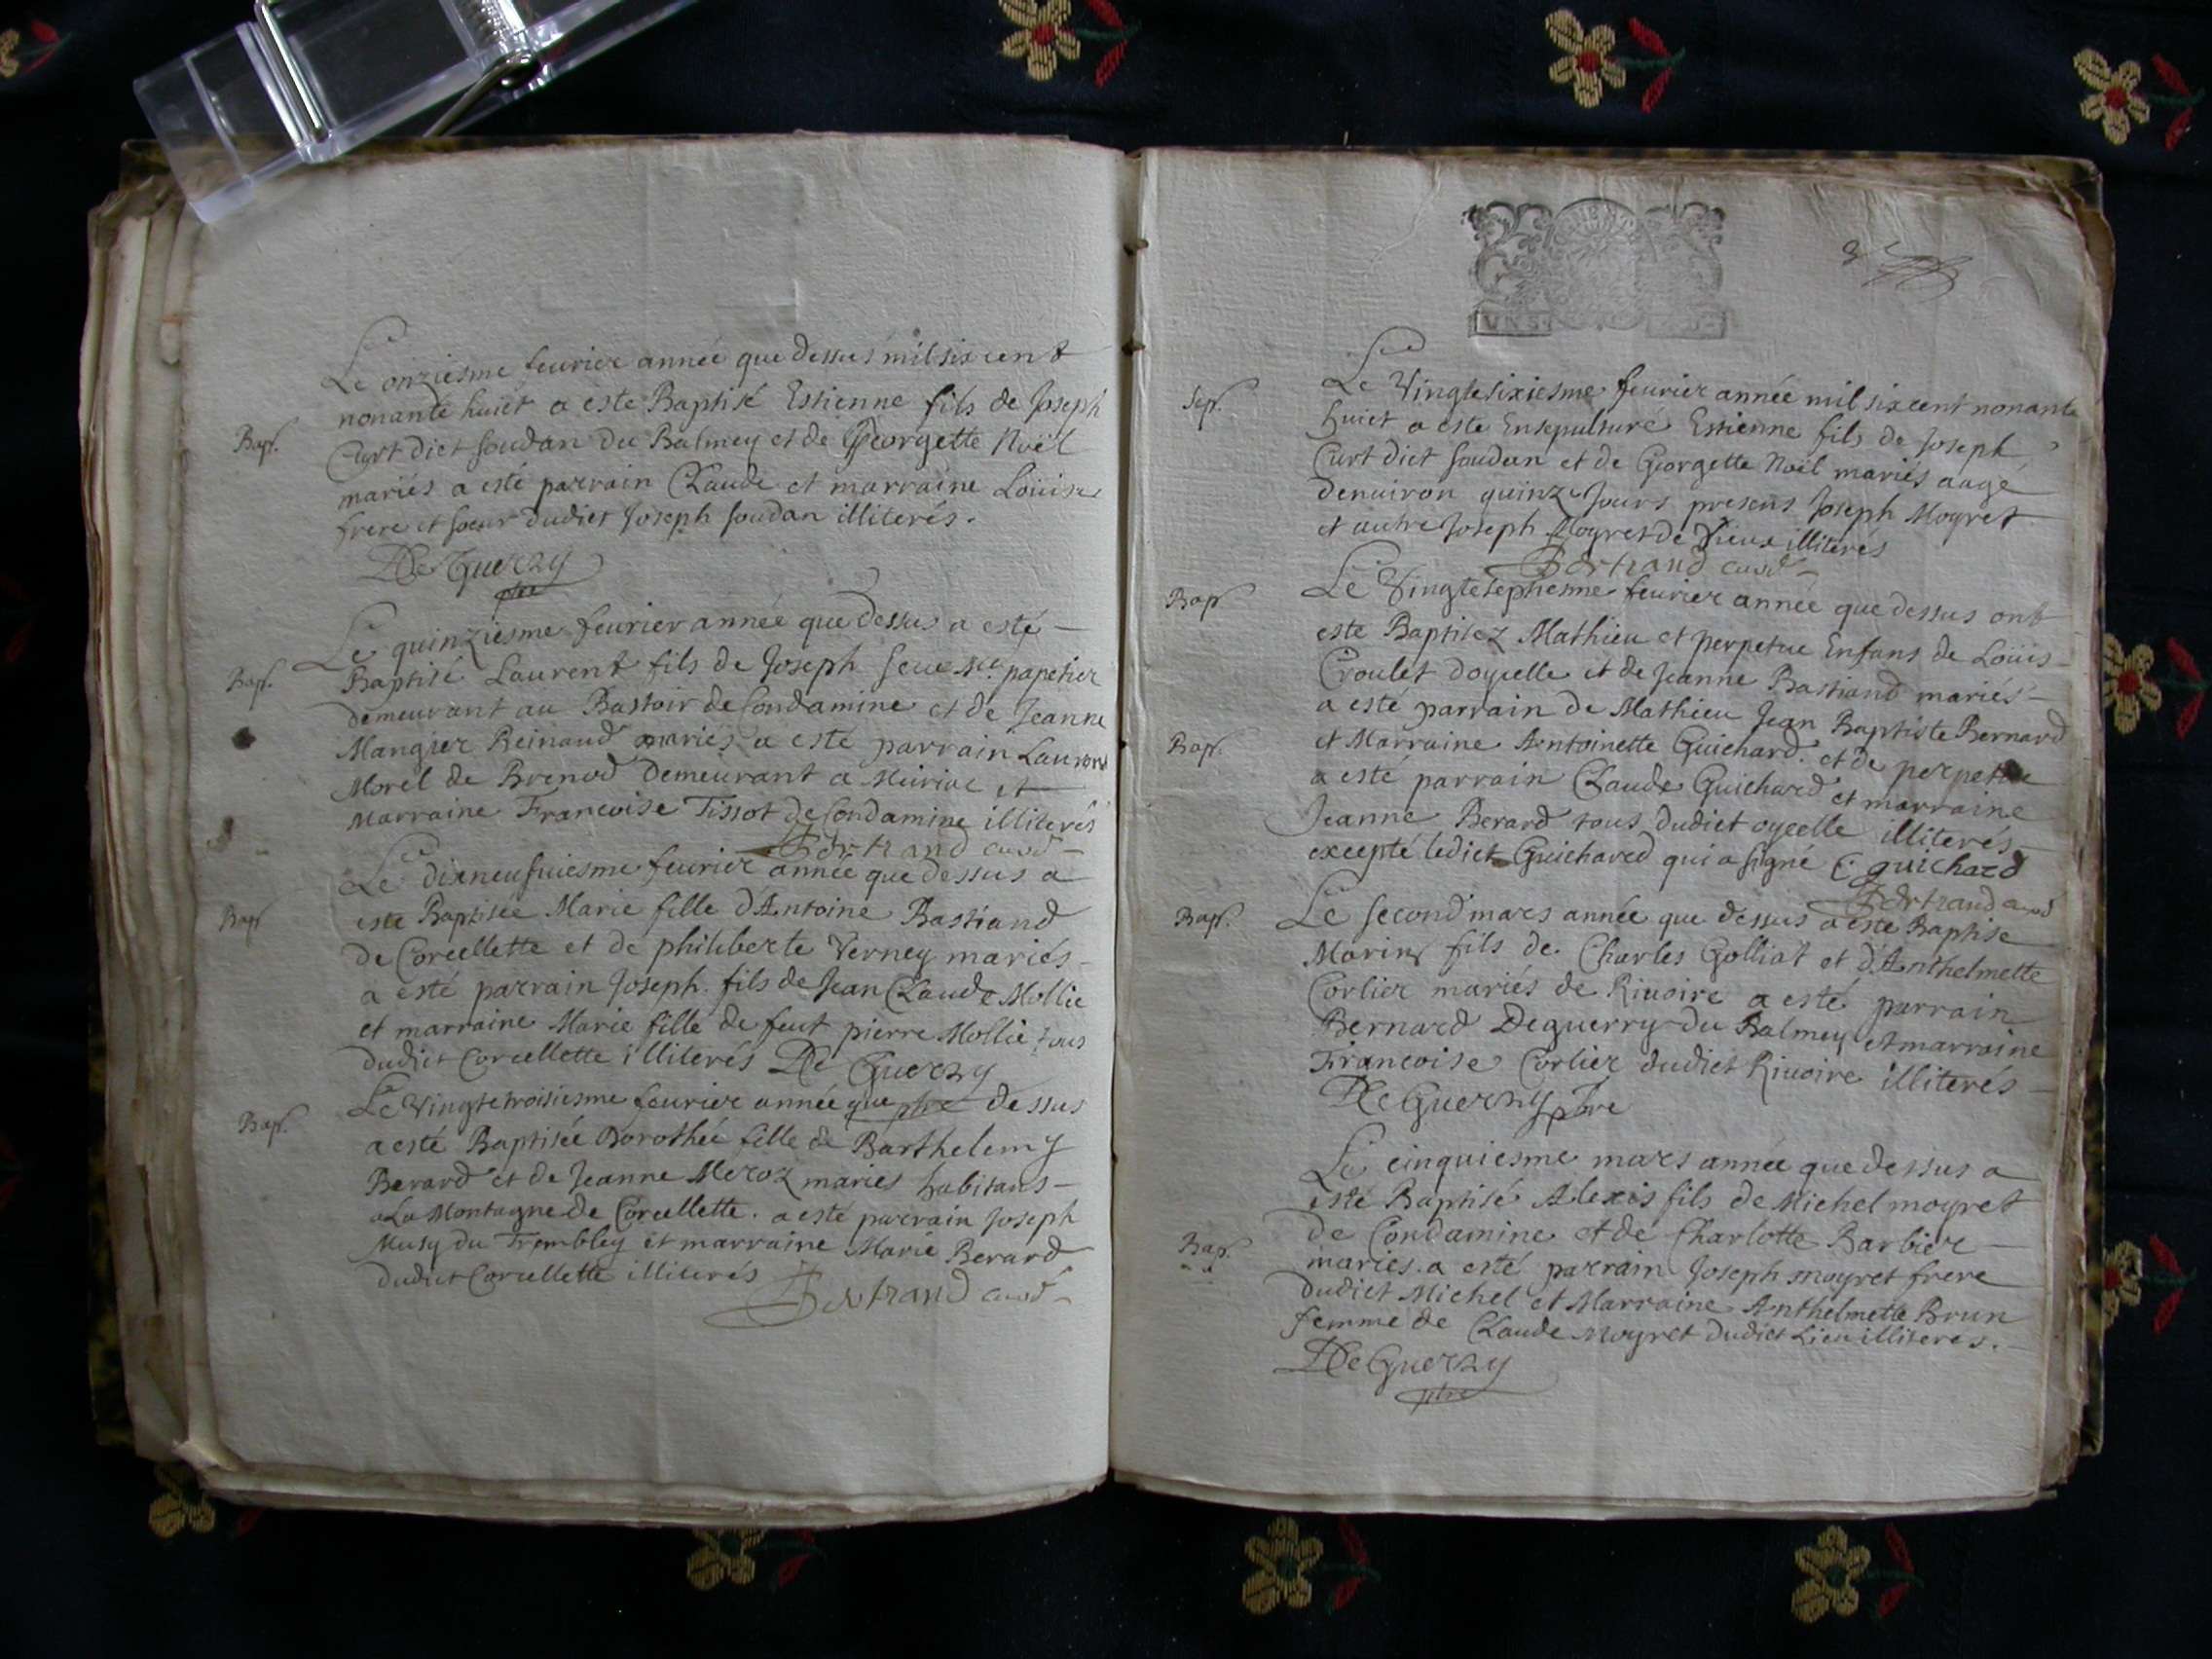 Le onziesme feurier année que dessus mil six cent
nonante huict a este Baptisé Estienne fils de Joseph
Bap.
Curt dict soudan du Balmey et de Georgette Noël
mariés a esté parrain Claude et marraine Loüise
frere et soeur dudict Joseph soudan illiterés.
DeGuerry
ptre
Le quinziesme feurier année que dessus a esté
Bap.
Baptisé Laurent fils de Joseph papetier
demeurant au Bastoir de Condamine et de Jeanne
Mangier Reinaud mariés a esté parrain Laurent
Morel de Brenod Demeurant a et
Marraine Francoise Tissot de Condamine illiterés
Bertrand curé
Le dixneufuiesme feurier année que dessus a
Bap
este Baptisée Marie fille d'Antoine Bastiand
de Corcellette et de philiberte Verney mariés
a esté parrain Joseph fils de Jean Claude Mollie
et marraine Marie fille de feut pierre Mollie tous
dudict Corcellette illiterés De Guerry
ptre
Le Vingtetroisiesme feurier année que dessus
Bap.
a esté Baptisée Dorothée fille de Barthelemy
Berard et de Jeanne Meroz mariés habitans
a La Montagne de Corcellette. a esté parrain Joseph
Musy du Trembley et marraine Marie Berard
dudict Corcellette illiterés
Bertrand curé
Le Vingtesixiesme feurier année mil six cent nonante
Sep.
huict a este Ensepulturé Estienne fils de Joseph
Curt dict soudan et de Georgette Noël mariés aagé
denuiron quinze Jours presens Joseph Moyret
et autre Joseph Moyret de illiterés
Bertrand curé
Le Vingteseptiesme feurier année que dessus ont
Bap
este Baptisez Mathieu et perpetue Enfans de Loüis
Croulet doycelle et de Jeanne Bastiand mariés
a esté parrain de Mathieu Jean Baptiste Bernard
Bap.
et Marraine Antoinette Guichard. et de perpetue
a esté parrain Claude Guichard et marraine
Jeanne Berard tous dudict oycelle illiterés
excepté ledict Guichard qui a signé C. guichard
Bertrand curé
Bap.
Le second mars année que dessus a este Baptisé
Marin fils de Charles Golliat et d'Anthelmette
Corlier mariés de Riuoire a esté parrain
Bernard Deguerry du Balmey et marraine
Francoise Corlier dudict Riuoire illiterés
DeGuerry ptre
Le cinquiesme mars année que dessus a
esté Baptisé Alexis fils de Michel moyret
Bap.
de Condamine et de Charlotte Barbier
mariés. a esté parrain Joseph moyret frere
dudict Michel et Marraine Anthelmette Brun
femme de Claude Moyret dudict Lieu illiterés.
DeGuerry
ptre